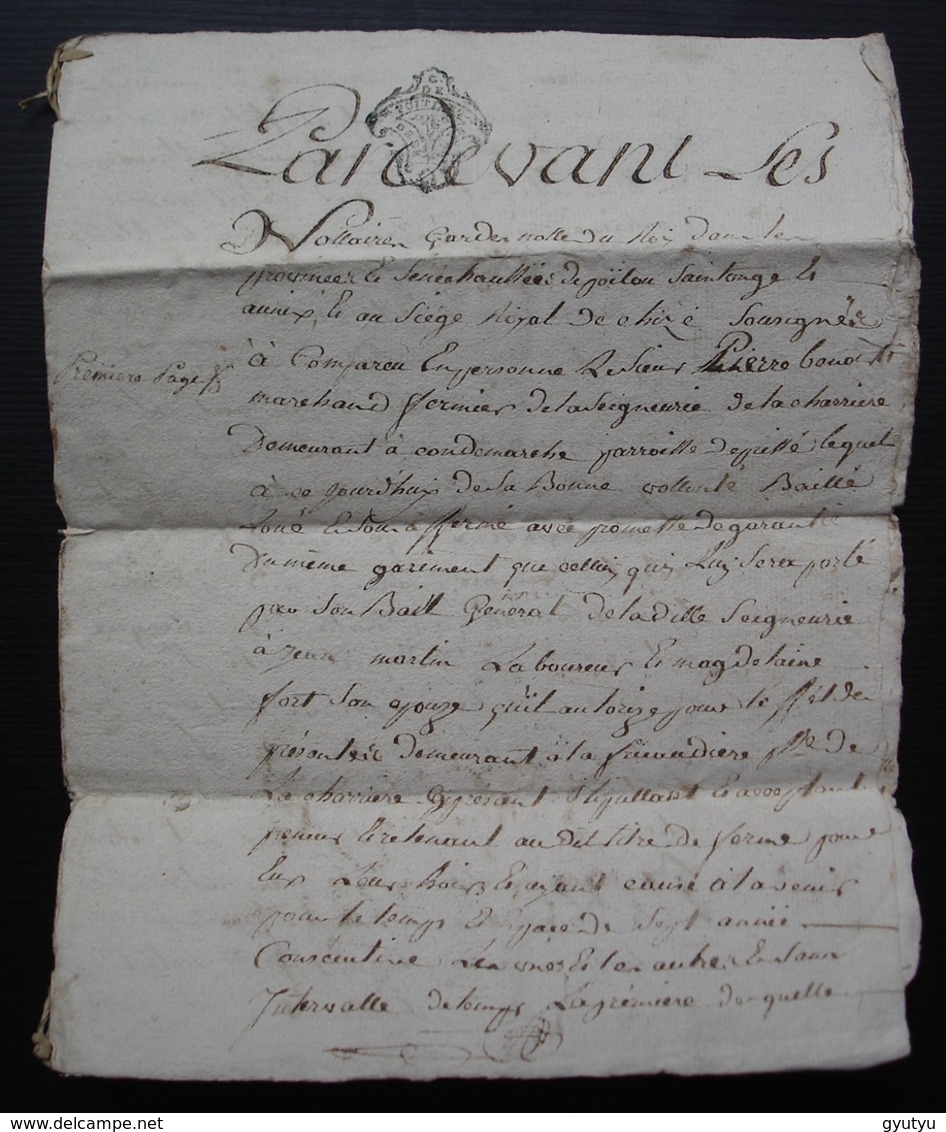 G.
DE
POITIERS
Pardevant Les
Nottaires Gardenotte du Roy dans les
provinces Et Senechaussées de poitou Saintonge Et
aunix, Et au Siége Royal De chizé Sousignés
à Compareu En personne Le Sieur Pierre
Premiere Page
marchand fermier de la Seigneurie de la charriere
Demeurant à condemarche parroisse de lequel
à ce jourd'huy de Sa Bonne vollonté Baillé
Loué Et affermé avec promette de garantie
Du même gariment que celluy quy Luy Sera porté
par Son Bail General de la ditte Seigneurie
à Jean martin Laboureur Et magdelaine
fort Son Epouze qu'il autorize pour l'effet des
présentes demeurant à la de
La charriere Cy présent Stipullant Et acceptant
preneur Et retenant au dit titre de ferme pour
Eux Leurs hoirs Et ayant cause à l'avenir
pour le temps Et Espace de Sept année
Consecutive Les unes Et les autres Et sans
Intervalle de temps La prémiere desquelle
gyutyu